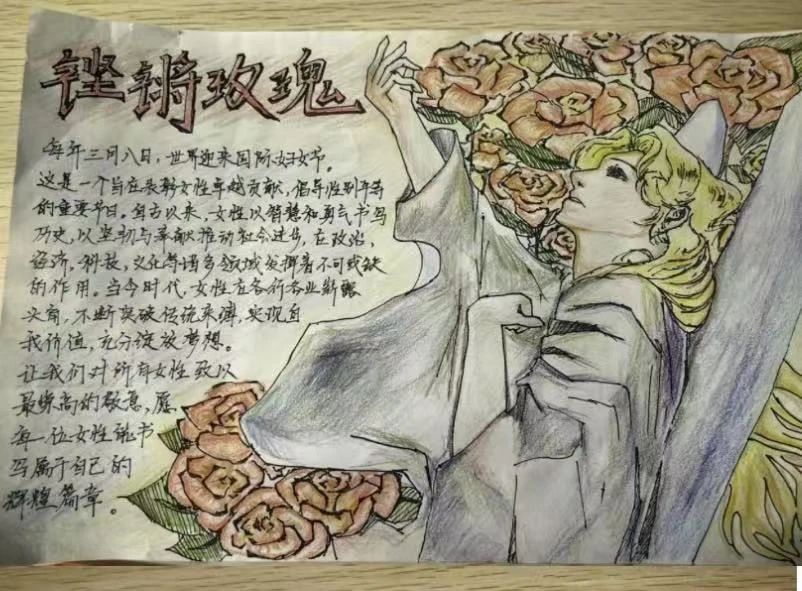 铿锵玫瑰
每年三月八日，世界迎来国际妇女节。
这是一个旨在表彰女性卓越贡献，倡导性别平等
的重要节日。自古以来，女性以智慧和勇气书写
历史，以坚韧与奉献推动社会进步，在政治，
经济，科技，文化等诸多领域发挥着不可或缺
的作用。当今时代，女性在各行各业崭露
头角，不断突破传统束缚，实现自
我价值，充分绽放梦想。
让我们对所有女性致以
最崇高的敬意，愿
每一位女性能书
写属于自己的
辉煌篇章。